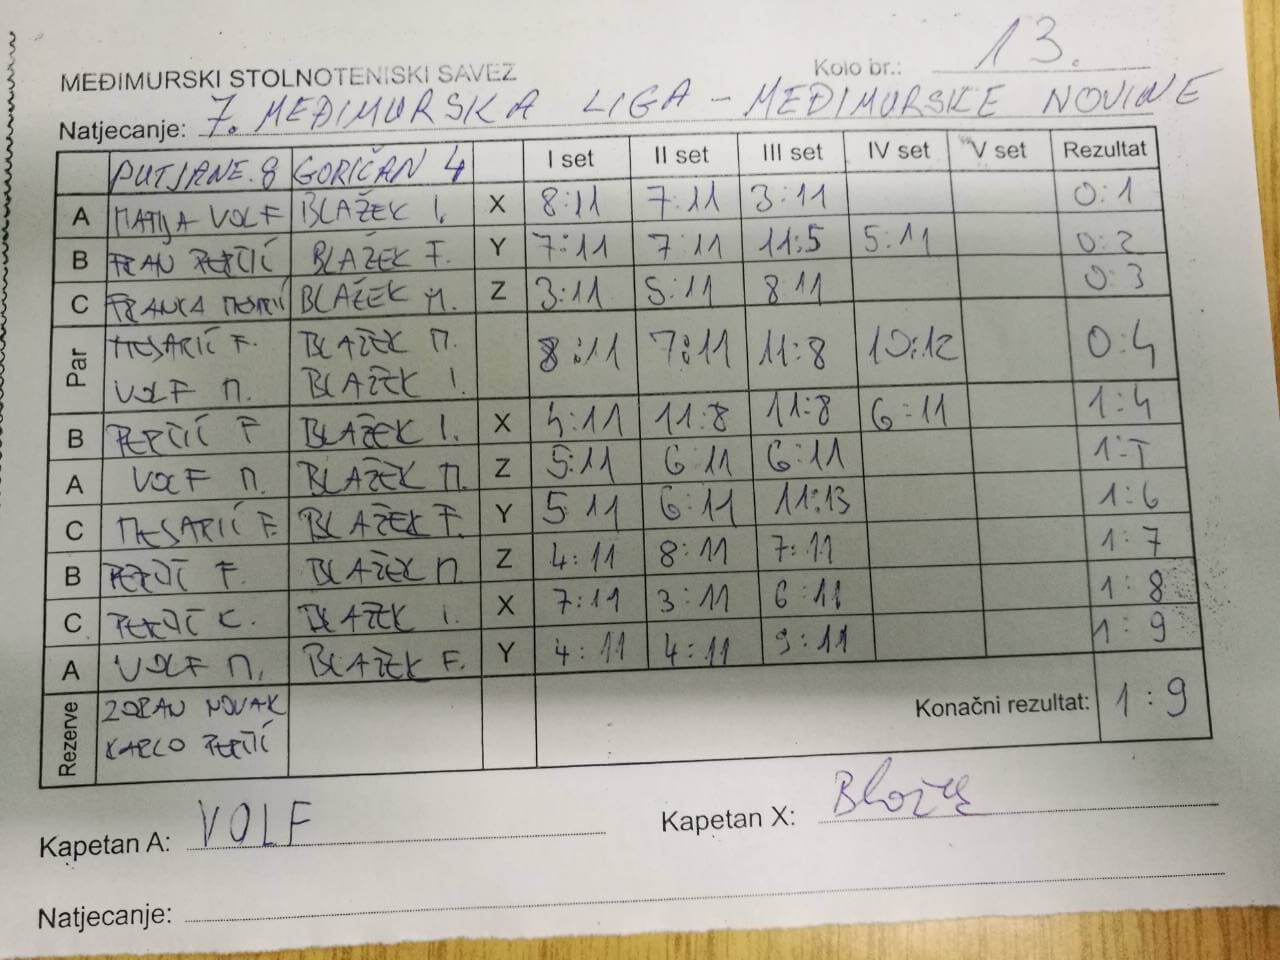 MEĐIMURSKI STOLNOTENISKI SAVEZ Kolo br.: 13.
Natjecanje: 7. MEĐIMURSKA LIGA - MEĐIMURSKE NOVINE
PUTJANE. 8 GORIČAN 4 I set II set III set IV set V set Rezultat
A MATIJA VOLF BLAŽEK I. X 8:11 7:11 3:11 0:1
B FRAN PERTIĆ BLAŽEK F. Y 7:11 7:11 11:5 5:11 0:2
C FRANKA MESARIĆ BLAŽEK M. Z 3:11 5:11 8 11 0:3
Par MESARIĆ F. BLAŽEK M. 8:11 7:11 11:8 10:12 0:4
VOLF M. BLAŽEK I.
B PERTIĆ F BLAŽEK I. X 4:11 11:8 11:8 6:11 1:4
A VOLF M. BLAŽEK M. Z 5:11 6:11 6:11 1:5
C MESARIĆ F. BLAŽEK F. Y 5 11 6:11 11:13 1:6
B PERTIĆ F. BLAŽEK M. Z 4:11 8:11 7:11 1:7
C PERTIĆ K. BLAŽEK I. X 7:11 3:11 6:11 1:8
A VOLF M. BLAŽEK F. Y 4:11 4:11 9:11 1:9
Rezerve ZORAN NOVAK Konačni rezultat: 1:9
KARLO PERTIĆ
Kapetan A: VOLF Kapetan X: Blažek
Natjecanje: